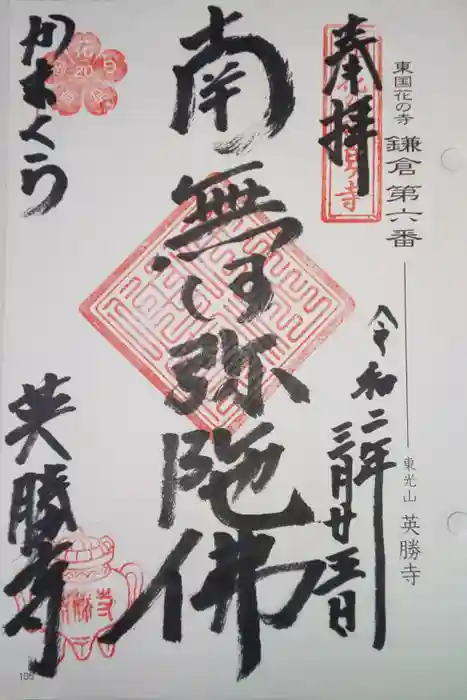 東国花の寺 鎌倉第六番
東光山 英勝寺
奉拝
令和二年
三月廿五日
南無阿弥陀佛
かまくら
英勝寺
105